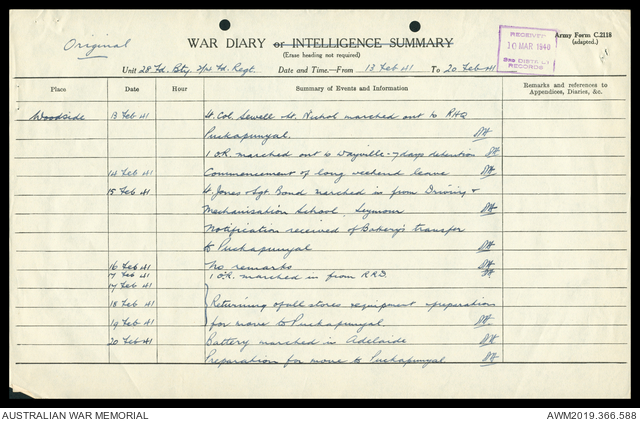 Original
WAR DIARY or INTELLIGENCE SUMMARY
(Erase heading not required)
Army Form C.2118
(adapted.)
RECEIVED
10 MAR 1940
RECORDS
Unit 28 Fd. Bty. Fd. Regt. Date and Time.—From 13 Feb 41 To 20 Feb 41
Place Date Hour Summary of Events and Information Remarks and references to
Appendices, Diaries, &c.
Woodside 13 Feb 41 Lt. Col. Sewell Lt. Nichol marched out to RHQ
Puckapunyal.
1 O.R. marched out to Wayville - 7 days detention
14 Feb 41 Commencement of long weekend leave
15 Feb 41 Lt. Jones & Sgt. Bond marched in from Driving &
Mechanisation School, Seymour
Notification received of Battery's transfer
to Puckapunyal
16 Feb 41 No remarks
17 Feb 41 1 O.R. marched in from R.R.D.
17 Feb 41
18 Feb 41 Returning of all stores & equipment & preparation
19 Feb 41 for move to Puckapunyal.
20 Feb 41 Battery marched in Adelaide
Preparation for move to Puckapunyal
AUSTRALIAN WAR MEMORIAL AWM2019.366.588